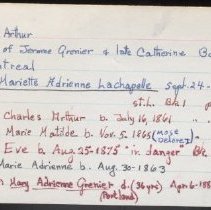 Arthur
of Jerome Grenier & late Catherine
Mariette Adrienne Lachapelle Sept-24-
Charles Arthur b. July 16, 1861 "
Marie Matilde b. Nov. 5. 1865 "
Eve b Aug 25-1875 "in danger"
Marie Adrienne b. Aug. 30-1863
Mary Adrienne Grenier d. (36 yrs) Apr 6-188
(Portland)